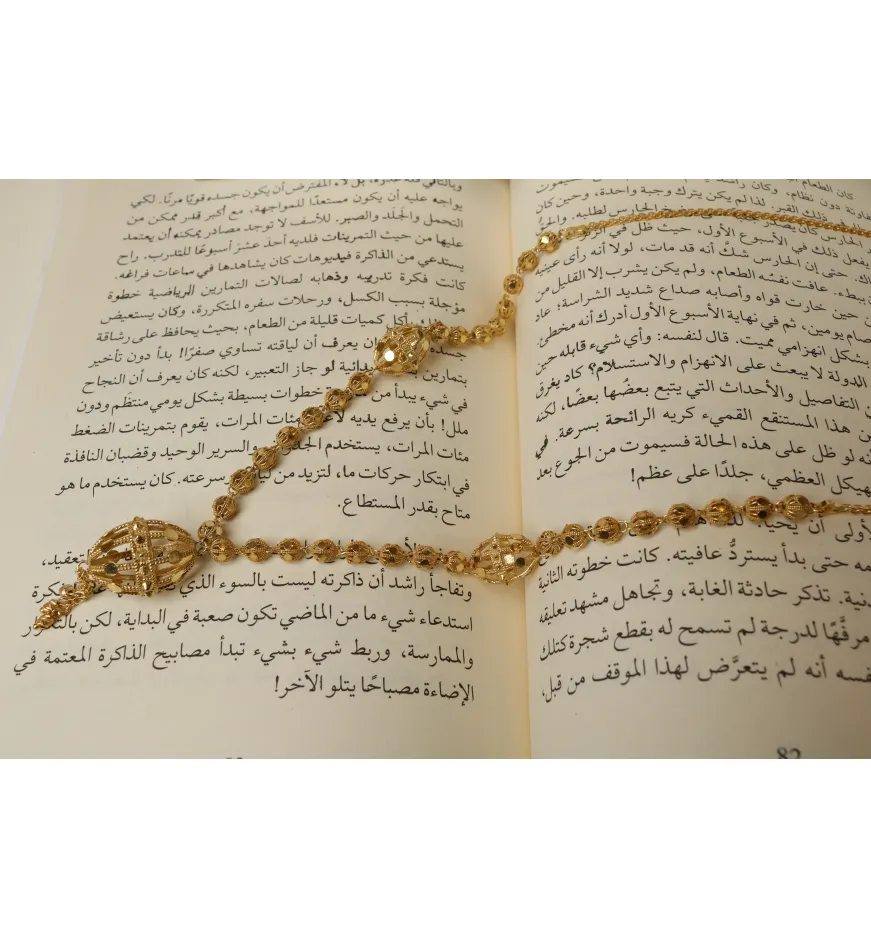 كان الطعام
هادئة دون نظام، وكان راشد
في ذلك القبر. لذا لم يكن يترك وجبة واحدة، وحين كان
الحارس كان يصدر
يفعل ذلك في الأسبوع الأول، حيث ظل في
حتى إن الحارس شك أنه قد مات، لولا أنه رأى عينيه
ببطء. عافت نفسه الطعام، ولم يكن يشرب إلا القليل من
حين خارت قواه وأصابه صداع شديد الشراسة؛ عاد
صام يومين، ثم في نهاية الأسبوع الأول أدرك أنه مخطئ.
بشكل انهزامي مميت. قال لنفسه: وأي شيء قابله حين
الدولة لا يبعث على الانهزام والاستسلام؟ كاد يغرق
التفاصيل والأحداث التي يتبع بعضُها بعضًا، لكنه
من هذا المستنقع القميء كريه الرائحة بسرعة. في
أنه لو ظل على هذه الحالة فسيموت من الجوع بعد
الهيكل العظمي، جلدًا على عظم!
أن يحيا.
حتى بدأ يستردُّ عافيته. كانت خطوته الثانية
تذكر حادثة الغابة، وتجاهل مشهد تعليقه
مرفَّهًا لدرجة لم تسمح له بقطع شجرة كتلك
نفسه أنه لم يتعرَّض لهذا الموقف من قبل،
82
بل لأن المفترض أن يكون جسده قويًا مرنًا. لكي
يواجه عليه أن يكون مستعدًا للمواجهة، مع أكبر قدر ممكن من
التحمل والجَلَد والصبر. للأسف لا توجد مصادر يمكنه أن يعتمد
عليها من حيث التمرينات فلديه أحد عشرَ أسبوعًا للتدرب. راح
يستدعي من الذاكرة فيديوهات كان يشاهدها في ساعات فراغه.
كانت فكرة تدريبه وذهابه لصالات التمارين الرياضية خطوة
مؤجلة بسبب الكسل، ورحلات سفره المتكررة، وكان يستعيض
بأكل كميات قليلة من الطعام، بحيث يحافظ على رشاقة
جسده، يعرف أن لياقته تساوي صفرًا! بدأ دون تأخير
بتمارين بدائية لو جاز التعبير، لكنه كان يعرف أن النجاح
في شيء يبدأ من خطوات بسيطة بشكل يومي منتظَم ودون
ملل! بأن يرفع يديه مئات المرات، يقوم بتمرينات الضغط
مئات المرات، يستخدم والسرير الوحيد وقضبان النافذة
في ابتكار حركات ما، لتزيد من سرعته. كان يستخدم ما هو
متاح بقدر المستطاع.
التعقيد،
وتفاجأ راشد أن ذاكرته ليست بالسوء الذي
استدعاء شيء ما من الماضي تكون صعبة في البداية، لكن
والممارسة، وربط شيء بشيء تبدأ مصابيح الذاكرة المعتمة في
الإضاءة مصباحًا يتلو الآخر!